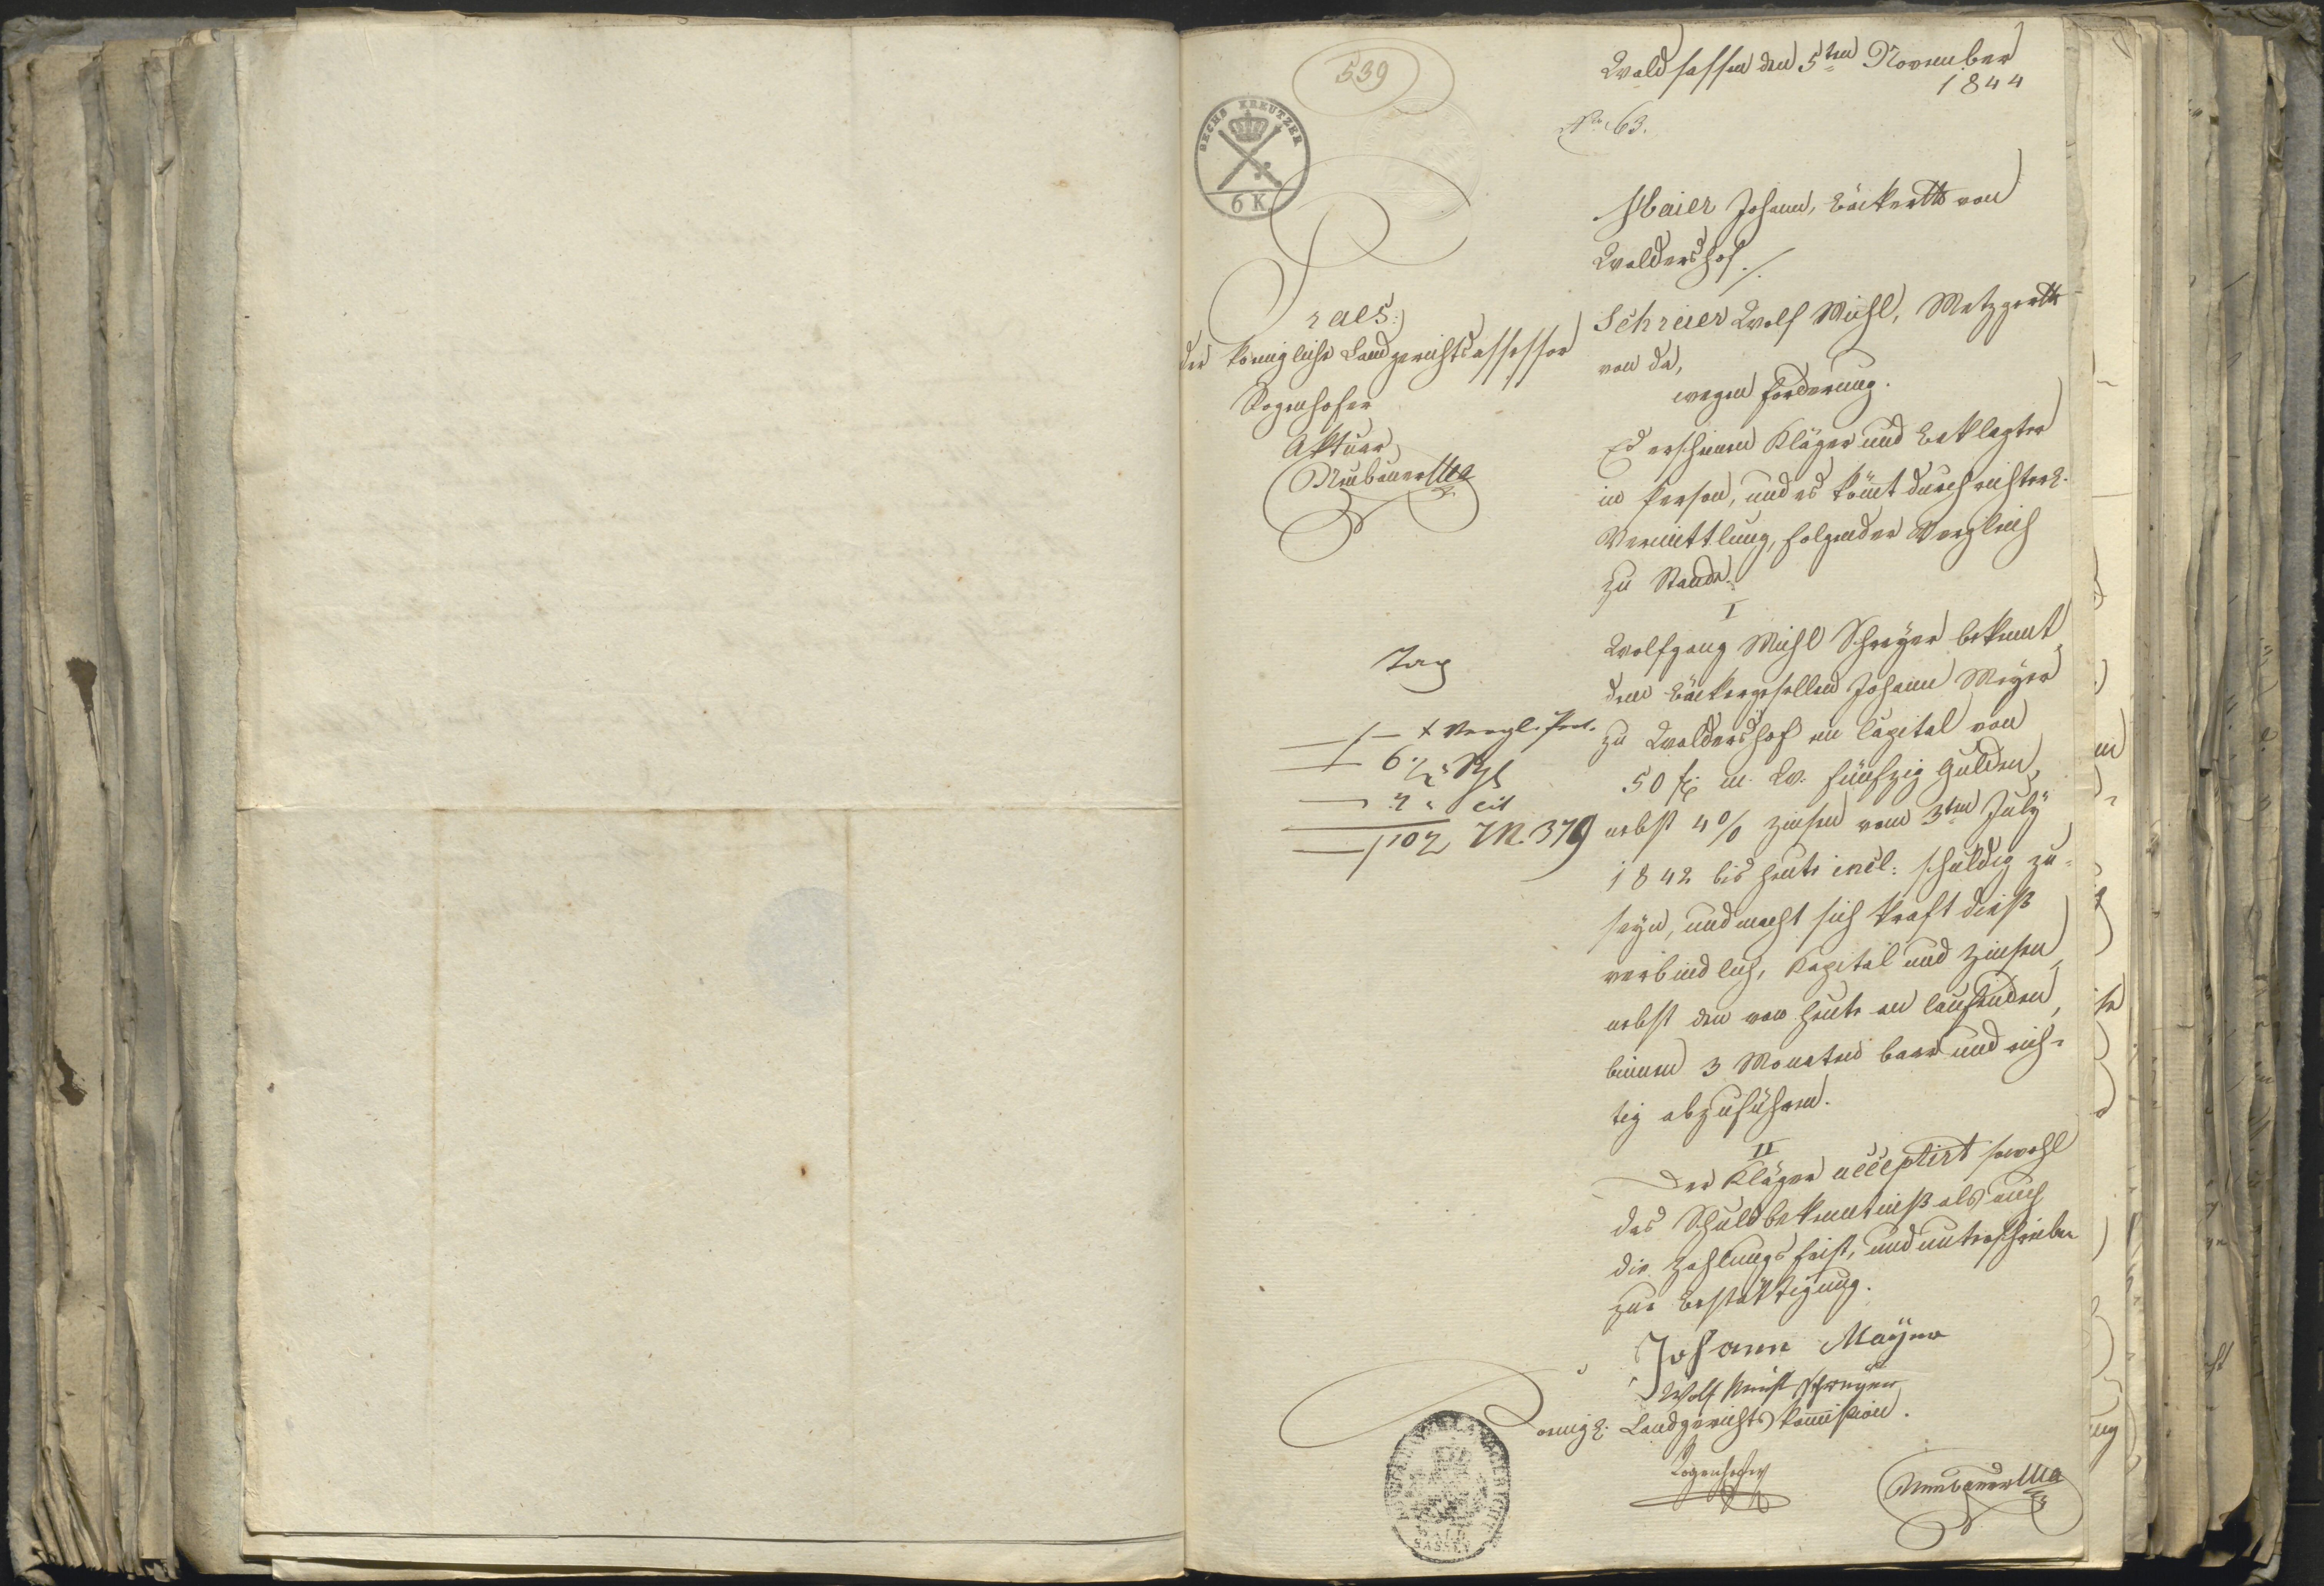 539
SECHS KREUTZER
6 K.
Waldsassen den 5ten November
1844
No 63.
Maier Johann, Bäcker von
Waldershof ./.
Schreier Wolf Michl, Metzger
von da,
wegen Forderung.
Praes:
der königliche Landgerichtsassessor
Aktuar
Neubauer
Es erscheinen Kläger und Beklagter
in Person, und es kömt durch richterl.
Vermittlung, folgender Vergleich
zu Stande.
I
Wolfgang Michl Schreyer bekennt
dem Bäckergesellen Johann Meyer
zu Waldershof ein Capital von
50 f. m. W. fünfzig Gulden,
nebst 4% Zinsen vom 3ten July
1842 bis heute incl: schuldig zu
seyn, und macht sich kraft dieß
verbindlich, Kapital und Zinsen
nebst den von heute an laufenden,
binnen 3 Monaten baar und rich-
tig abzuführen.
Tax
1 — x Vergl. Prot.
6 1/2 "
1 102 M. 379
II
Der Kläger acceptirt sowohl
das Schuldbekenntniß als auch
die Zahlungsfrist, und unterschreiben
zur Bestättigung.
Johann Mayer
Wolf Michl Schreyer
Königl. Landgerichts Kommißion.
Neubauer
WALD
SASSEN